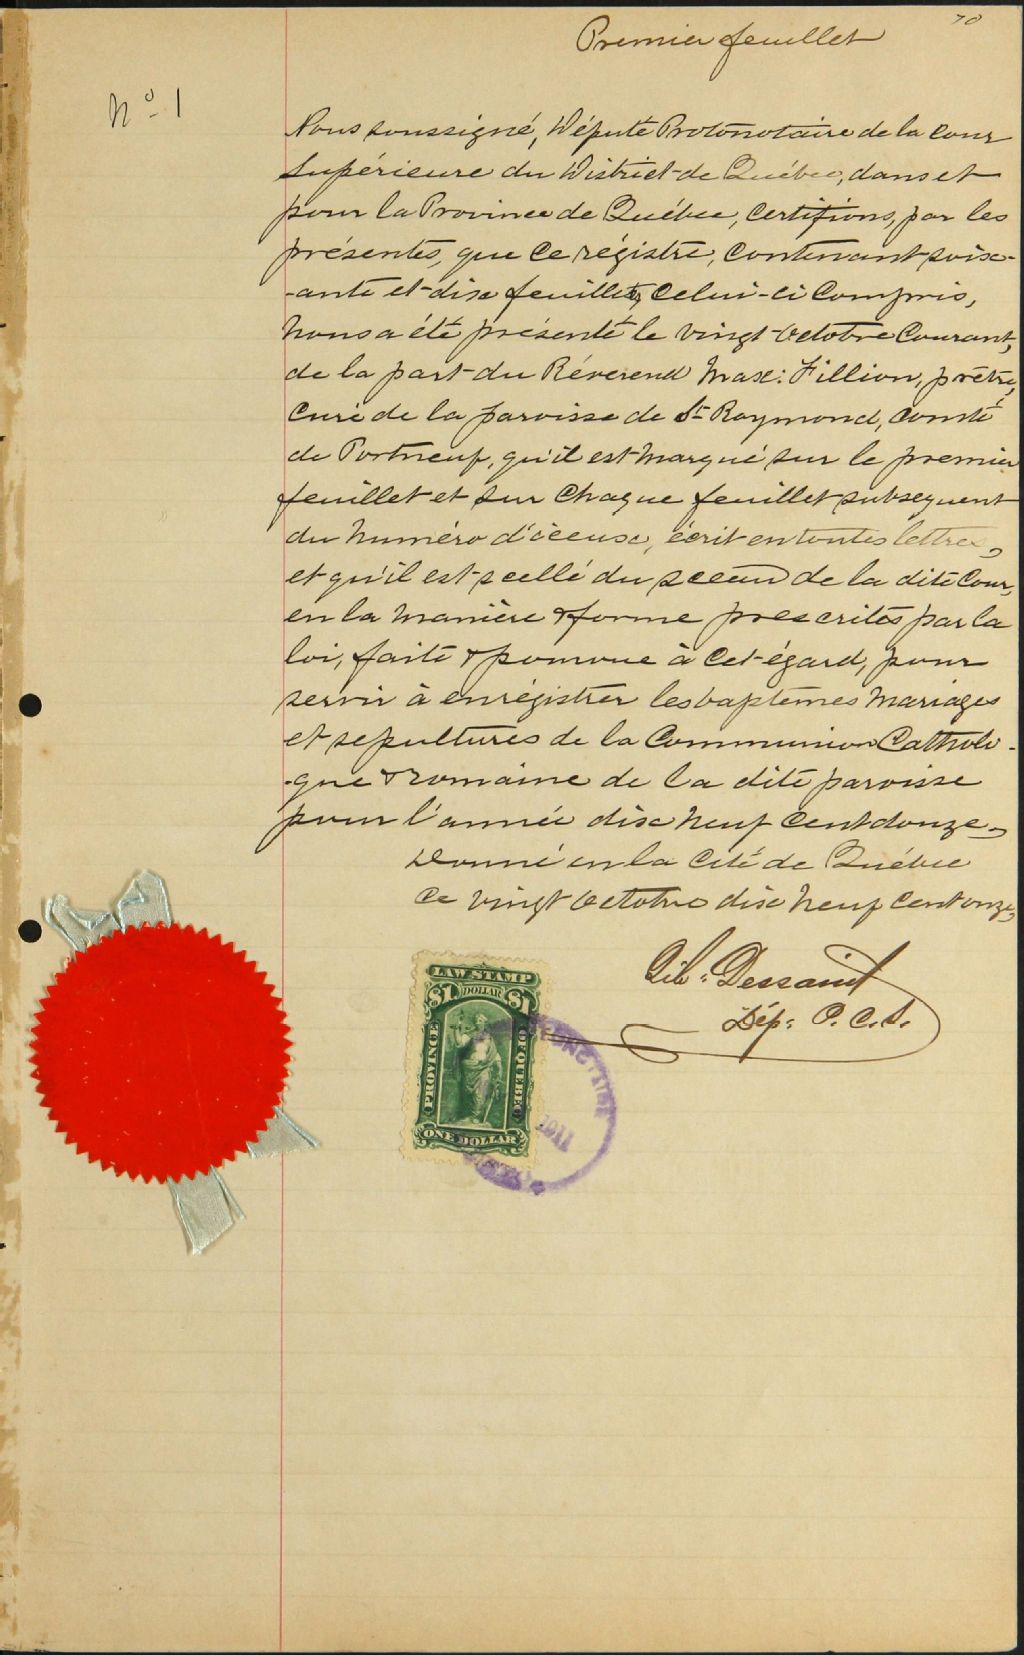 70
Premier feuillet
No 1
Nous soussigné, Député Protonotaire de la Cour
Supérieure du District de Québec, dans et
pour la Province de Québec, certifions, par les
présentes, que ce régistre, contenant soix-
-ante et dix feuillets, celui-ci compris,
nous a été présenté le vingt Octobre courant,
de la part du Révérend Max: Fillion, prêtre,
curé de la paroisse de St Raymond, comté
de Portneuf, qu'il est marqué sur le premier
feuillet et sur chaque feuillet subsequent
du numéro d'iceux, écrit en toutes lettres,
et qu'il est scellé du sceau de la dite Cour,
en la manière & forme prescrites par la
loi, faite & pourvue à cet égard, pour
servir à enrégistrer les baptêmes mariages
et sepultures de la Communion Catholi-
-que & romaine de la dite paroisse
pour l'année dix neuf cent douze.
Donné en la Cité de Québec
ce vingt Octobre dix neuf cent onze,
Dessaint
Dép: P. C. S.
LAW STAMP
$1 DOLLAR $1
PROVINCE OF QUEBEC
ONE DOLLAR
1911